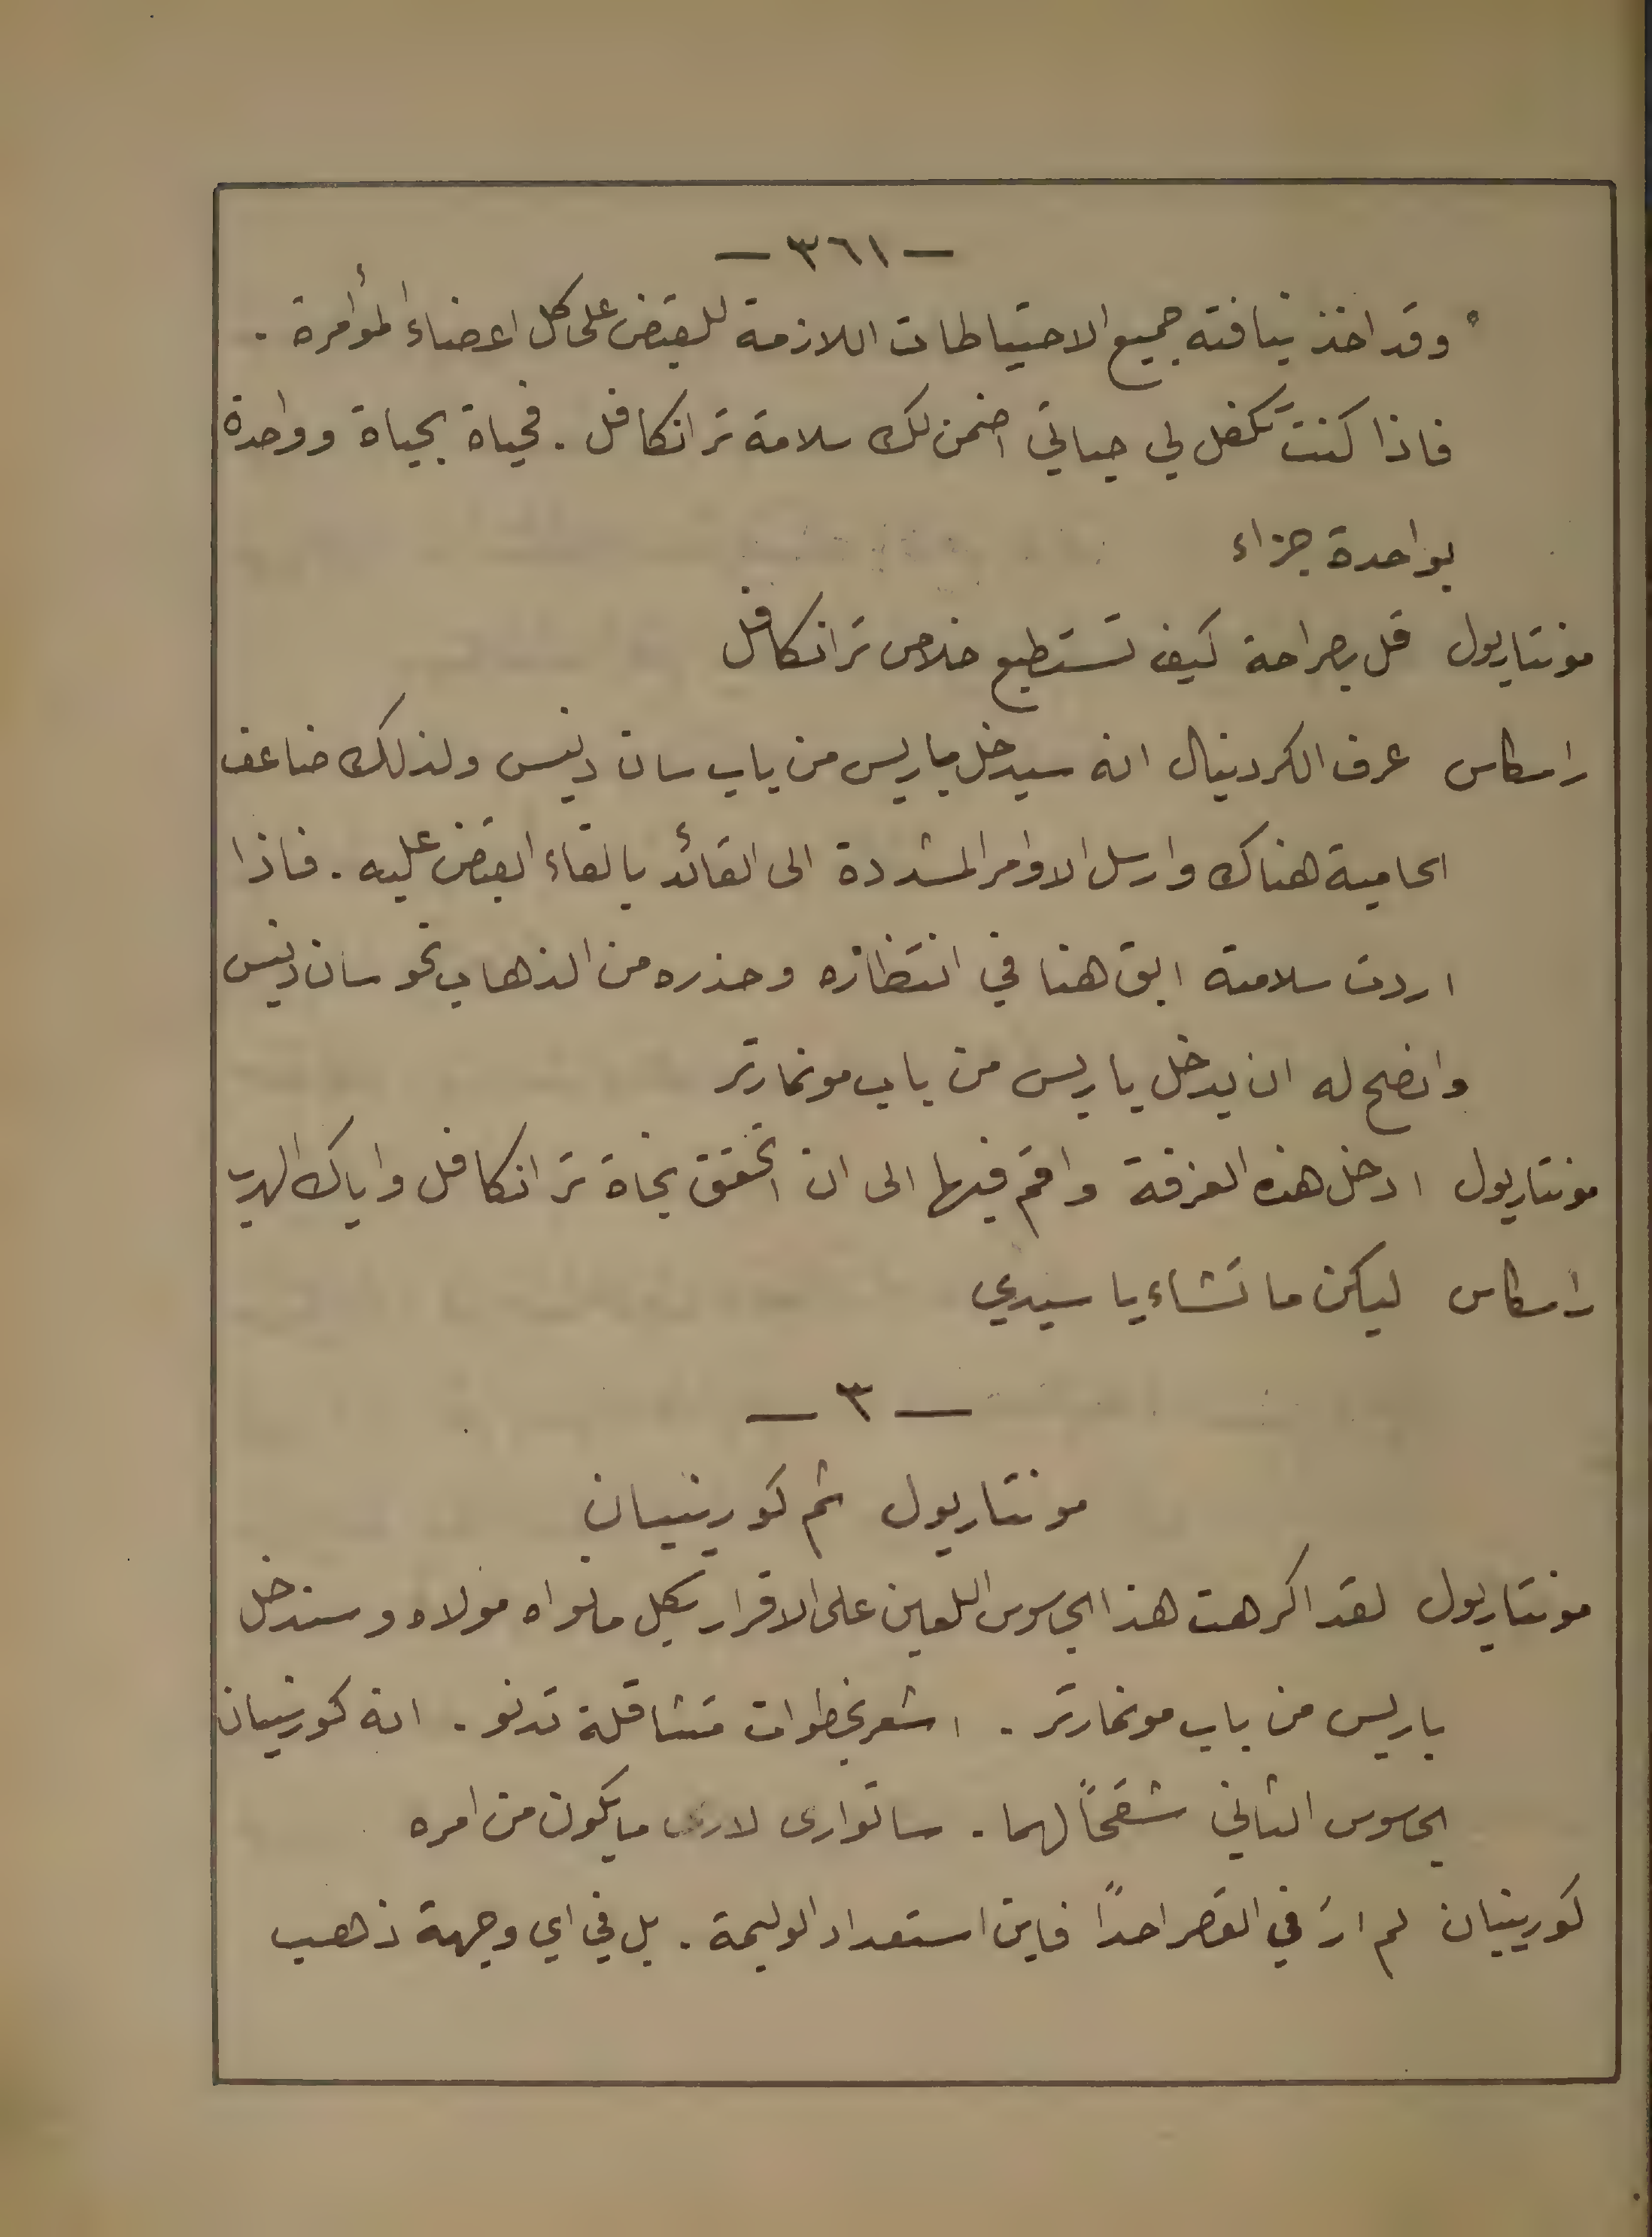 — ٣٦١ —
وقد اخذ نيافته جميع الاحتياطات اللازمة للقبض على كل اعضاء المؤأمرة .
فاذا كنت تكفل لي حياتي اضمن لك سلامة ترانكافل . فحياة بحياة وواحدة
بواحدة جزاء
مونتاريول قل بصراحة كيف تستطيع خلاص ترانكافل
راسكاس عرف الكردينال انه سيدخل باريس من باب سان دنيس ولذلك ضاعف
الحامية هناك وارسل الاوامر المشددة الى القائد بالقاء القبض عليه . فاذا
اردت سلامته ابق هنا في انتظاره وحذره من الذهاب نحو سان دنيس
وانصح له ان يدخل باريس من باب مونمارتر
مونتاريول ادخل هذه الغرفة واقم فيها الى ان اتحقق نجاة ترانكافل واياك الهرب
راسكاس ليكن ما تشاء يا سيدي
— ٣ —
مونتاريول ثم كورينيان
مونتاريول لقد اكرهت هذا الجاسوس اللعين على الاقرار بكل ما نواه مولاه وسندخل
باريس من باب مونمارتر . اشعر بخطوات متثاقلة تدنو . انه كورينيان
الجاسوس الثاني شقحًا لهما . ساتوارى لارى ما يكون من امره
كورينيان لم ارَ في القصر احدًا فاين استعداد الوليمة . بل في اي وجهة ذهب